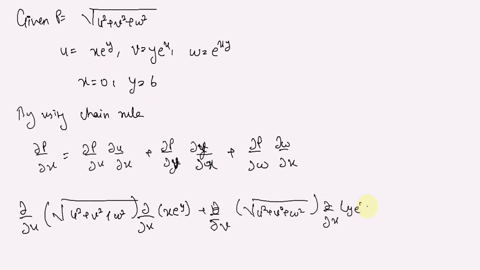 Given P = √(u²+v²+w²)
u = xe^y, v = ye^x, w = e^xy
x = 0, y = 6
By using chain rule
∂P/∂x = ∂P/∂u ∂u/∂x + ∂P/∂v ∂v/∂x + ∂P/∂w ∂w/∂x
∂/∂u (√(u²+v²+w²)) ∂/∂x (xe^y) + ∂/∂v (√(u²+v²+w²)) ∂/∂x (ye